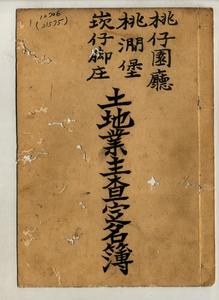 桃仔園廳
桃澗堡
崁仔脚庄
土地業主査定名簿
(21575)